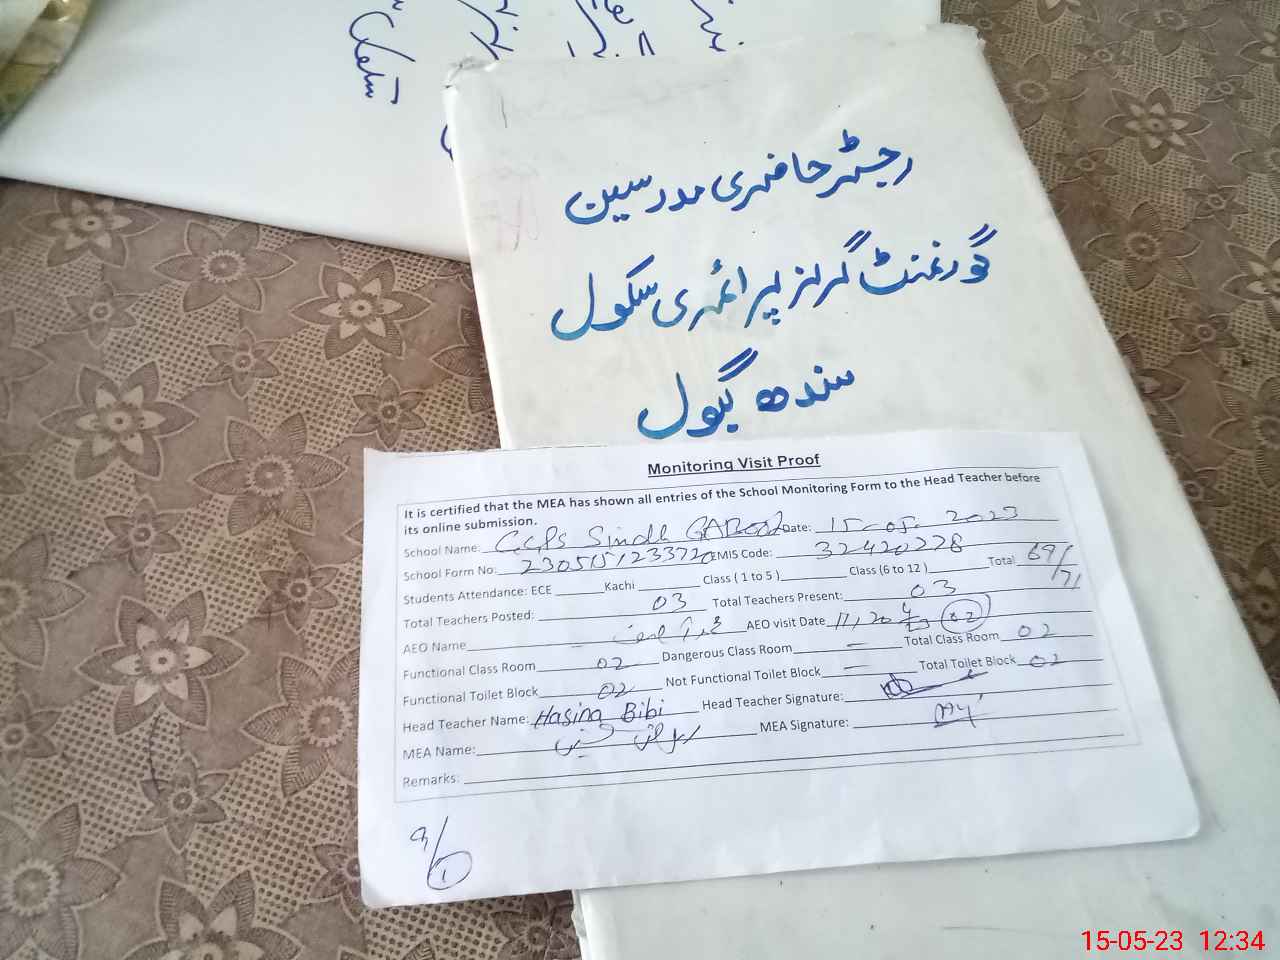 رجسٹر حاضری مدرسین
گورنمنٹ گرلز پرائمری سکول
سندھ گبول
Monitoring Visit Proof
It is certified that the MEA has shown all entries of the School Monitoring Form to the Head Teacher before
its online submission.
School Name: GGPS Sindh GABOOL Date: 15-05-2023
School Form No: 230515123372 EMIS Code: 32420228
Students Attendance: ECE Kachi Class ( 1 to 5 ) Class (6 to 12 ) Total 69/71
Total Teachers Posted: 03 Total Teachers Present: 03
AEO Name AEO visit Date 11, 20 4/23 (02)
Functional Class Room 02 Dangerous Class Room — Total Class Room 02
Functional Toilet Block 02 Not Functional Toilet Block — Total Toilet Block 02
Head Teacher Name: Hasina Bibi Head Teacher Signature:
MEA Name: MEA Signature:
Remarks:
15-05-23 12:34